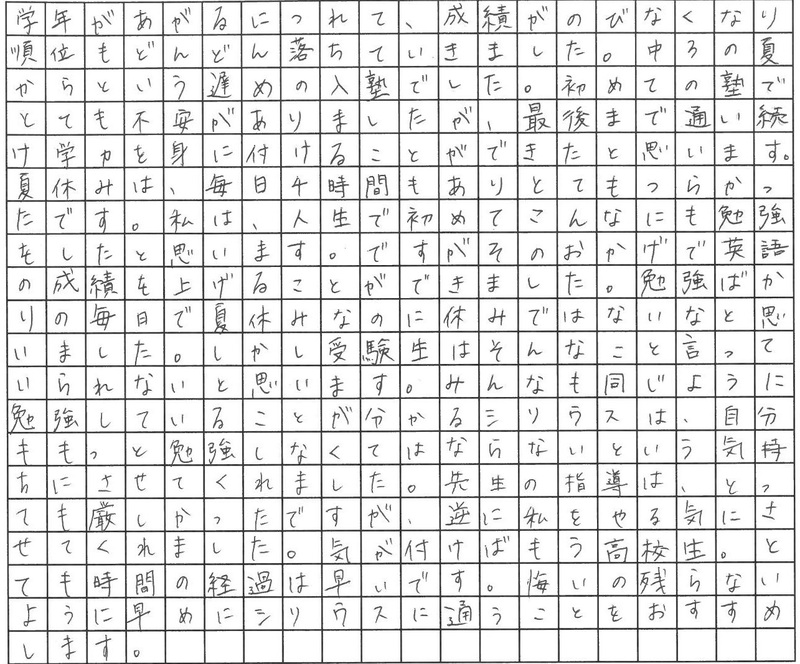 学年があがるにつれて、成績がのびなくなり
順位もどんどん落ちていきました。中3の夏
からという遅めの入塾でした。初めての塾で
とても不安がありましたが、最後まで通い続
け学力を身に付けることができたと思います。
夏休みは、毎日4時間もありとてもつらかっ
たです。私は、人生で初めてこんなにも勉強
をしたと思います。ですがそのおかげで英語
の成績を上げることができました。勉強ばか
りの毎日で夏休みなのに休みではないなと思
いました。しかし受験生はそんなこと言って
いられないと思います。みんなも同じように
勉強していることが分かるシリウスは、自分
ももっと勉強しなくてはならないという気持
ちにさせてくれました。先生の指導は、とっ
ても厳しかったですが、逆に私をやる気にさ
せてくれました。気が付けばもう高校生。と
ても時間の経過は早いです。悔いの残らない
ように早めにシリウスに通うことをおすすめ
します。